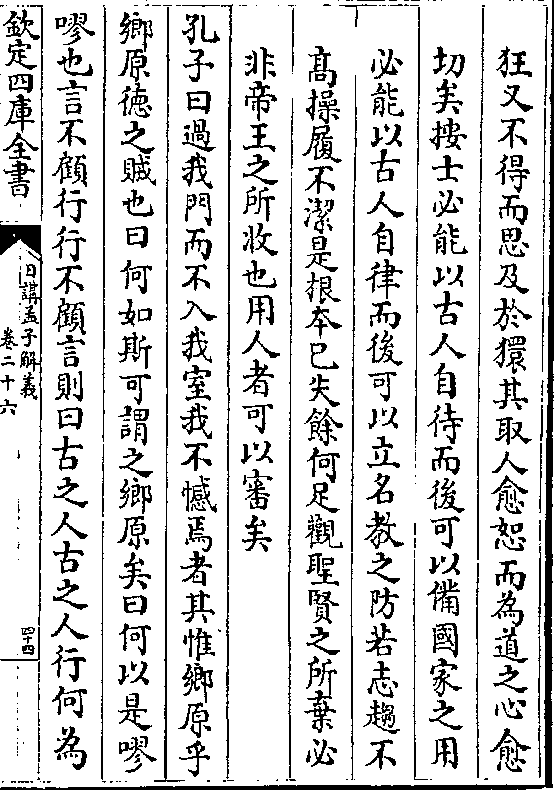 狂又不得而思及於獧其取人愈恕而為道之心愈
切矣按士必能以古人自待而後可以備國家之用
必能以古人自律而後可以立名教之防若志趨不
髙操履不潔是根本已失餘何足觀聖賢之所棄必
非帝王之所收也用人者可以審矣
孔子曰過我門而不入我室我不憾焉者其惟鄉原乎
鄉原徳之賊也曰何如斯可謂之鄉原矣曰何以是嘐
嘐也言不顧行行不顧言則曰古之人古之人行何為
欽定四庫全書
日講孟子解義
卷二十六
四十四